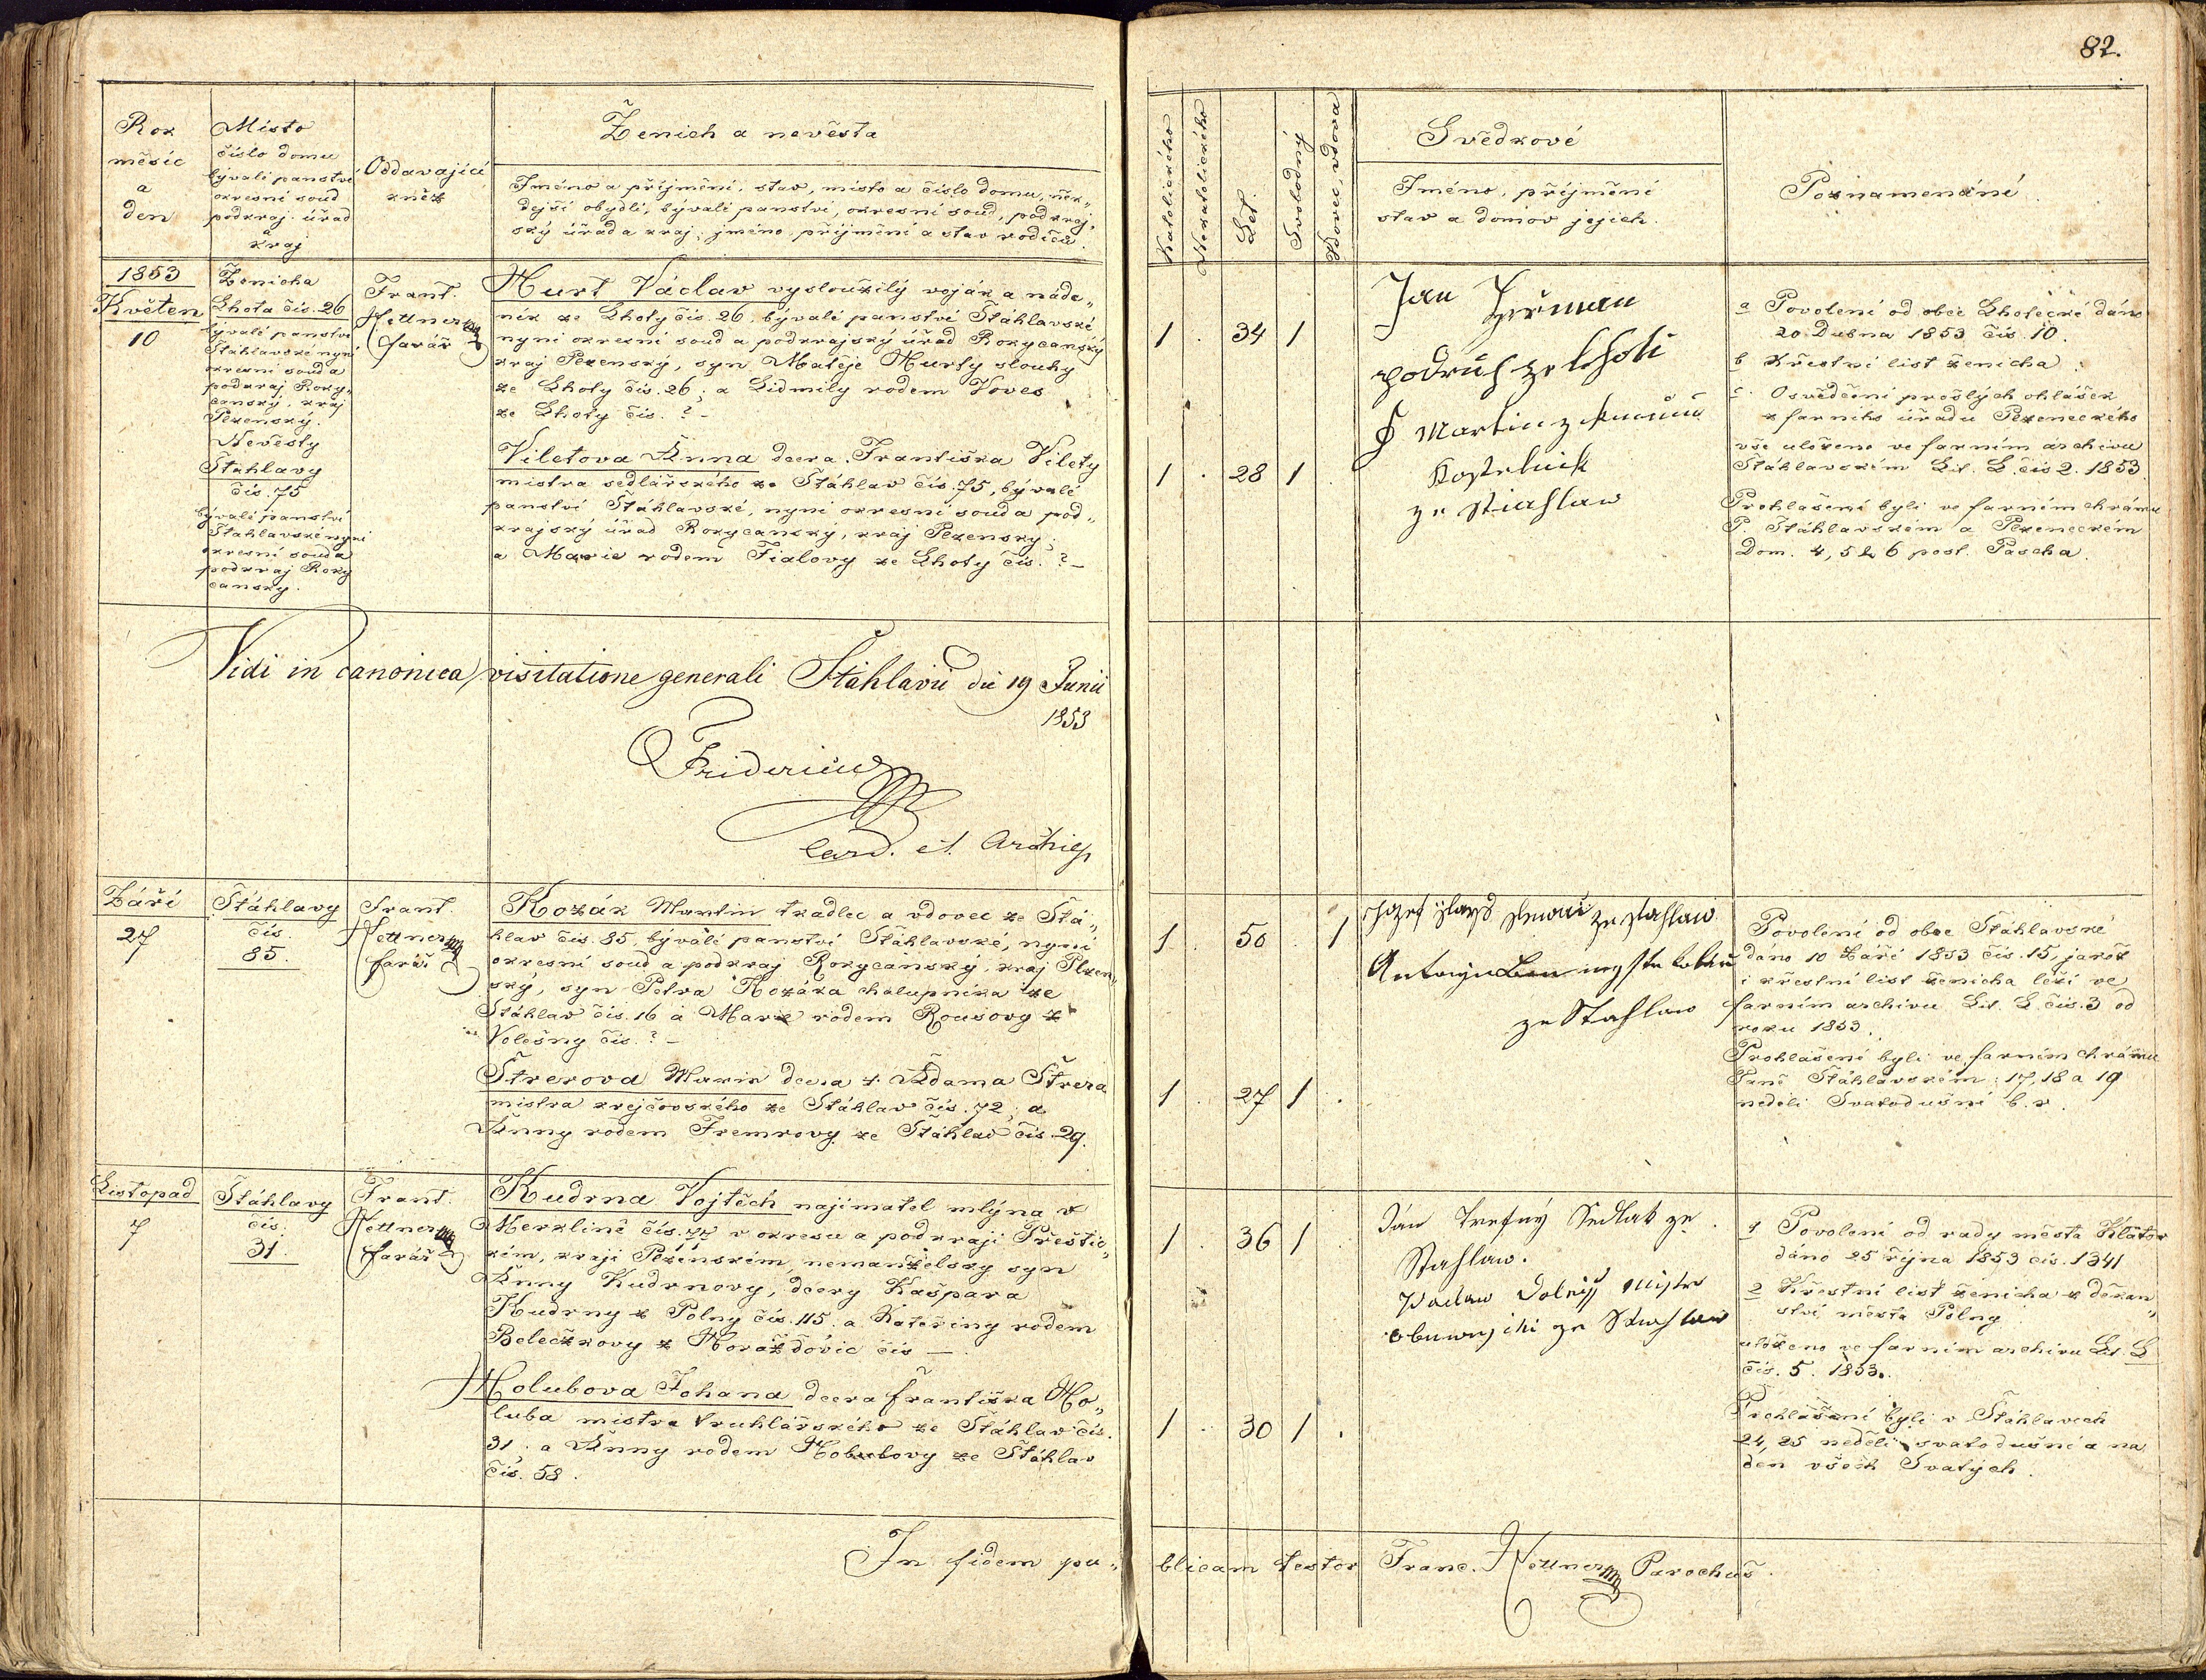 82.
Rok
měsíc
a
den
Místo
číslo domu
bývalé panství
okresní soud
podkraj. úřad
a
kraj
Oddavající
kněz
Ženich a nevěsta
Jméno a příjmění, stav, místo a číslo domu, něk„
dejší obydlí, bývalé panství, okresní soud, podkraj„
ský úřad a kraj; jméno příjmění a stav rodičů.
Katolického
Nekatolického
Let.
Svobodný
Vdovec, vdova
Svědkové
Jméno, příjmění
stav a domov jejich.
Poznamenání.
1853
Květen
10
Ženicha
Lhota čís. 26
bývalé panství
Šťáhlavské nyní
okresní soud a
podkraj Roky„
canský, kraj
Plzenský.
Nevěsty
Šťáhlavy
čís. 75
bývalé panství
Šťahlavské nyní
okresní soud a
podkraj Roky
canský.
Frant.
Nettner
farář
Hurt Václav vysloužilý voják a náde„
ník ze Lhoty čís. 26, bývalé panství Šťáhlavské
nyní okresní soud a podkrajský úřad Rokycanský
kraj Plzenský, syn Matěje Hurty slouhy
ze Lhoty čís. 26; a Lidmily rodem Voves
ze Lhoty čís. ? –
Viletova Anna dcera Františka Vilety
mistra sedlářského ze Šťáhlav čís. 75, bývalé
panství Šťáhlavské, nyní okresní soud a pod„
krajský úřad Rokycanský, kraj Plzenský;
a Marie rodem Fialovy ze Lhoty čís. ? –
1 . 34 1
1 . 28 1 .
Jan
podruh ze Lhoti
Martin
Kostelnik
ze Stiahlaw
a Povolení od obce Lhotecké dáno
20 Dubna 1853 čís. 10.
b Křestní list ženicha.
c. Osvědčení prošlých ohlášek
z farního úřadu Plzeneckého
vše uloženo ve farním archivu
Šťáhlavském Lit. L. čís 2. 1853.
Prohlášeni byli ve farním chrámu
P. Šťáhlavském a Plzeneckém
Dom. 4, 5 & 6 post. Pascha.
Vidi in canonica visitatione generali Štáhlavii die 19 Junii
1853
Fridericus
Card. et Archiep
Září
27
Šťáhlavy
čís.
85.
Frant.
Nettner
farář
Kozák Martin tkadlec a vdovec ze Šťá„
hlav čís. 85, bývalé panství Šťáhlavské, nyní
okresní soud a podkraj Rokycanský, kraj Plzen„
ský, syn Petra Kozáka chalupníka ze
Šťáhlav čís. 16 a Marie rodem Rousovy z
Volešny čís. ? –
Štrerova Marie dcera † Adama Štrera
mistra krejčovského ze Šťáhlav čís. 72; a
Anny rodem Fremrovy ze Šťáhlav čís. 29.
1 . 50 . 1
1 . 27 1 .
Jozef ze Stahlaw
Antonjn
ze Stahlaw
Povolení od obce Šťáhlavské
dáno 10 Září 1853 čís. 15, jakož
i křestní list ženicha leží ve
farním archivu Lit. L čís. 3 od
roku 1853.
Prohlášeni byli ve farním chrámu
Páně Šťáhlavském: 17, 18 a 19
neděli Svatodušní b. r.
Listopad
7
Šťáhlavy
čís.
31.
Frant.
Nettner
farář
Kudrna Vojtěch najímatel mlýna v
Merklíně čís. 77 v okresu a podkraji Přeštic„
kém, kraji Plzenském, nemanželský syn
Anny Kudrnovy, dcery Kašpara
Kudrny z Polny čís. 115. a Kateřiny rodem
Belečkovy z Horažďovic čís —.
Holubova Johana dcera Františka Ho„
luba mistra truhlářského ze Šťáhlav čís.
31; a Anny rodem Hobulovy ze Šťáhlav
čís. 58.
1 . 36 1 .
1 . 30 1 .
Ján Trefný Sedlak ze
Stahlaw.
Waclaw Dolegss Mistr
obuwnjcki ze Stiahlaw
1 Povolení od rady města Klatov
dáno 25 října 1853 čís. 1341
2 Křestní list ženicha z děkan„
ství města Polny
uloženo ve farním archivu Lit. L
čís. 5. 1853.
Prohlášeni byli v Šťáhlavech
24, 25 neděli svatodušní a na
den všech Svatých.
In fidem pu„
blicam testor Franc. Nettner Parochus.